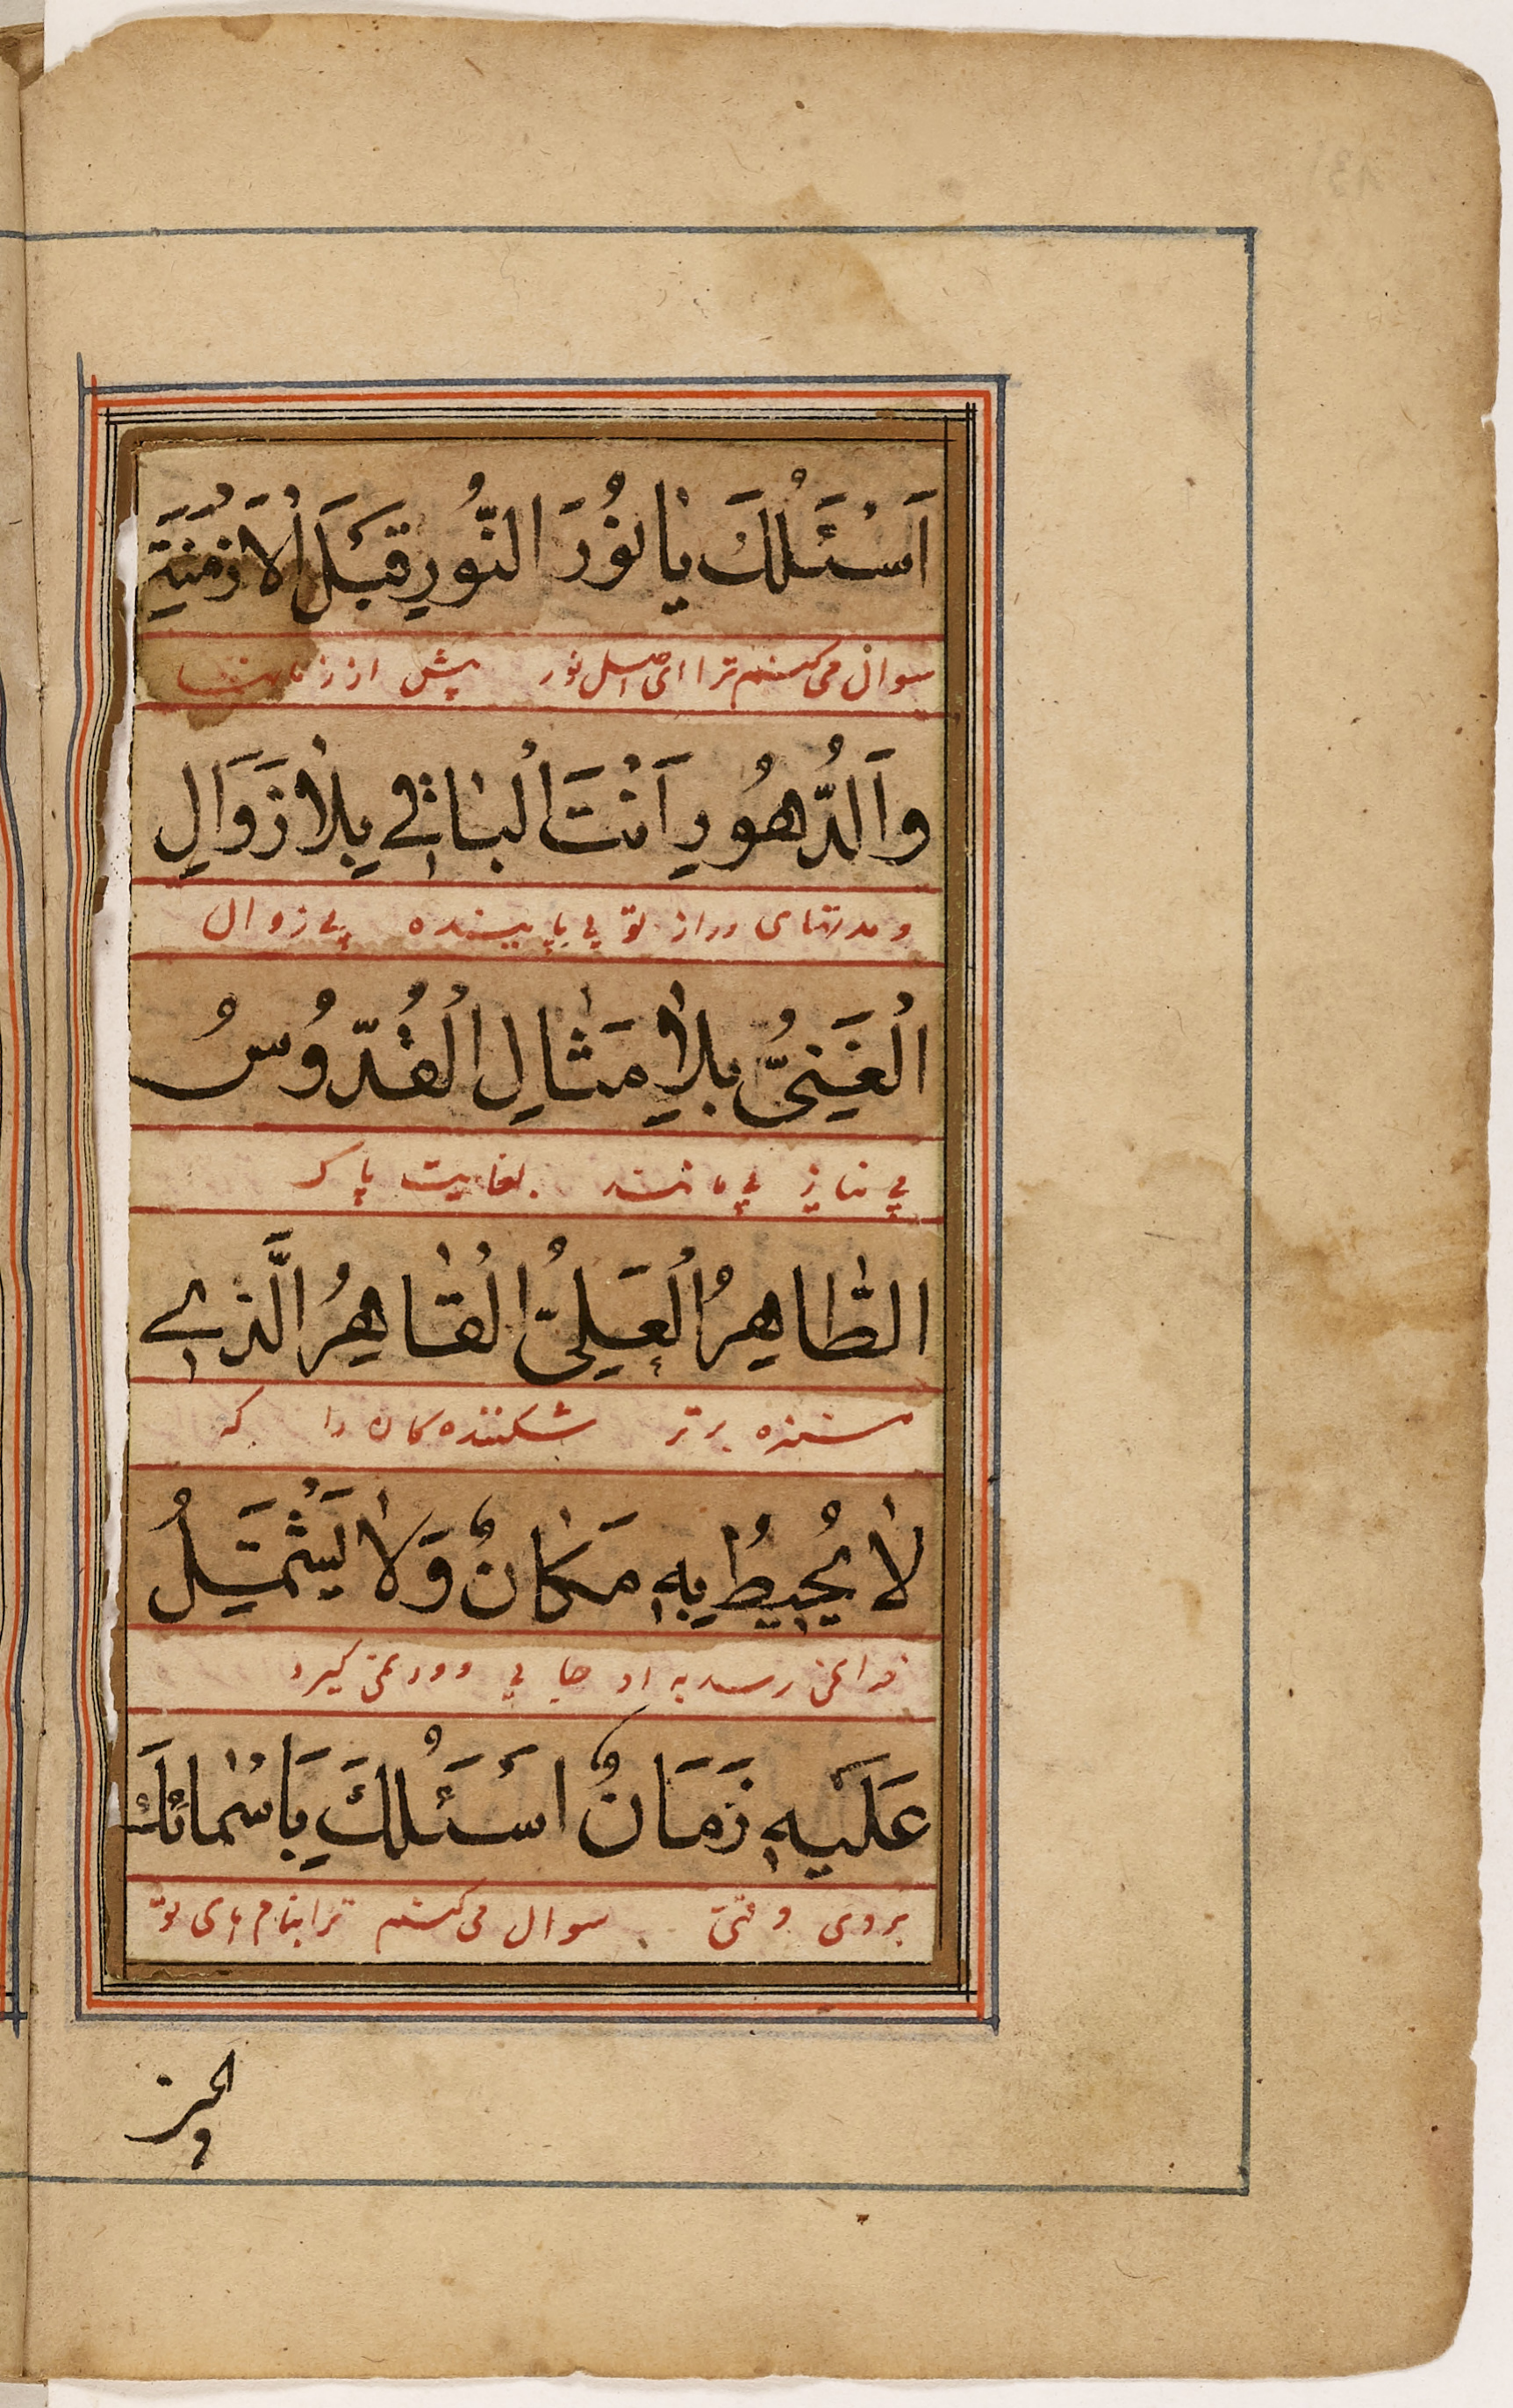 اَسْئَلُكَ يٰا نُورَ النُّورِ قَبْلَ الْاَزْمِنَةِ
سوال می کنم ترا ای اصل نور پیش از زمانها
وَالدُّهُورِ اَنْتَ الْبٰاقٖي بِلٰا زَوَالٍ
و مدتهای دراز تویی پاینده بی زوال
الْغَنِيُّ بِلٰا مِثٰالِ الْقُدُّوسُ
بی نیاز بی مانند بغایت پاک
الطّٰاهِرُ الْعَلِيُّ الْقٰاهِرُ الَّذٖي
برتر شکننده کان را که
لٰا يُحٖيطُ بِهٖ مَكٰانٌ وَلٰا يَشْتَمِلُ
فرا نمی رسد به او جایی و در نمی گیرد
عَلَيْهٖ زَمَانٌ اَسْئَلُكَ بِاَسْمٰائِكَ
بروی وقتی سوال می کنم ترا بنام های تو